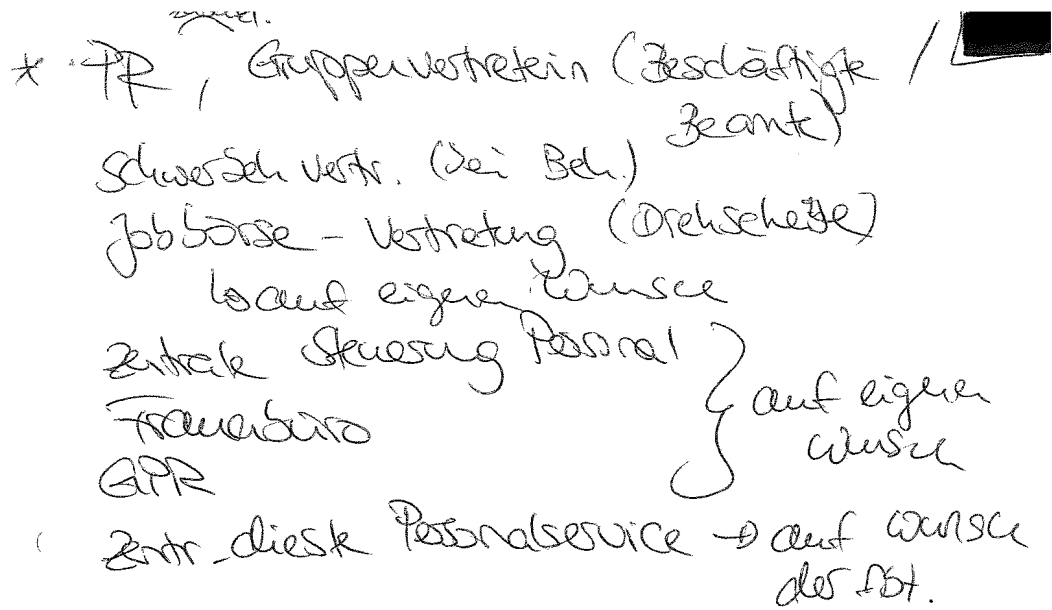 * PR, Gruppenvertreterin (Beschäftigte /
Beamte)
Schwerbeh vertr. (bei Beh.)
Jobbörse - Vertretung (Drehscheibe)
↳ auf eigenen Wunsch
Zentrale Steuerung Personal
Frauenbüro
GPR
auf eigenen
Wunsch
Zentr. dienste Personalservice → auf Wunsch
der Abt.